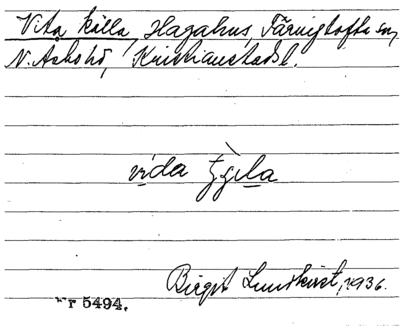 Vita källa, Hagahus, Färingtofta sn,
N. Åsbo hd, Kristianstads l.
vida
Birgit Lundkvist, 1936.
Nr 5494.